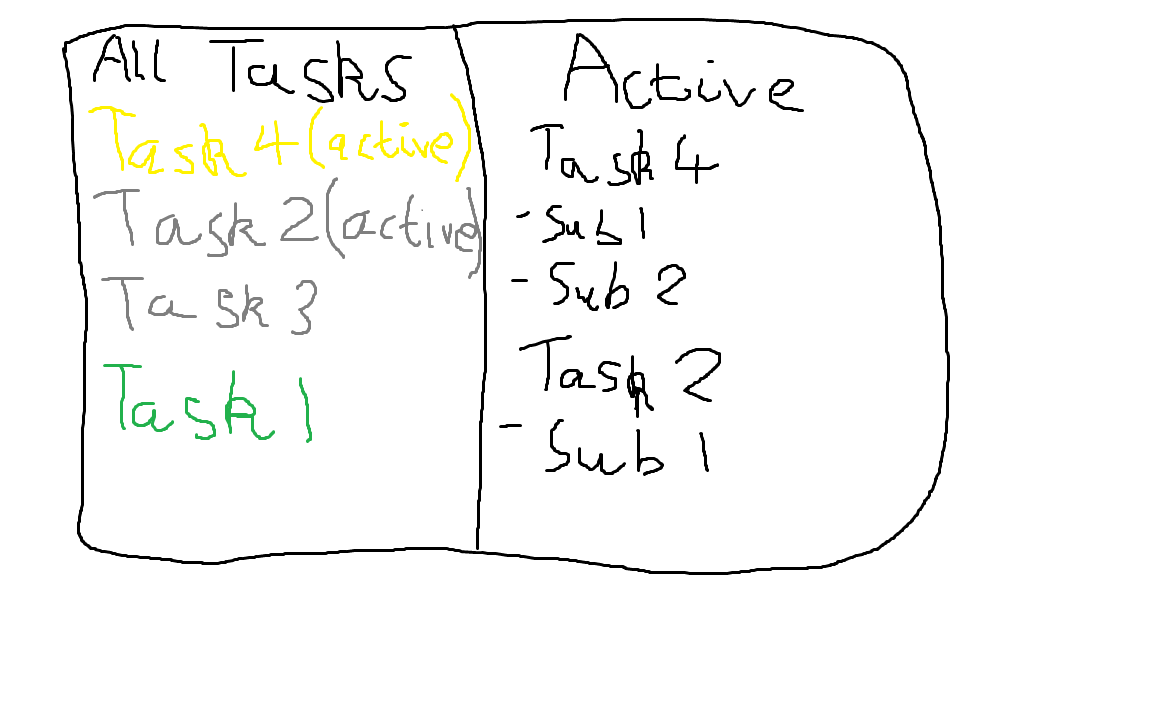 All Tasks
Task 4 (active)
Task 2 (active)
Task 3
Task 1
Active
Task 4
- Sub 1
- Sub 2
Task 2
- Sub 1